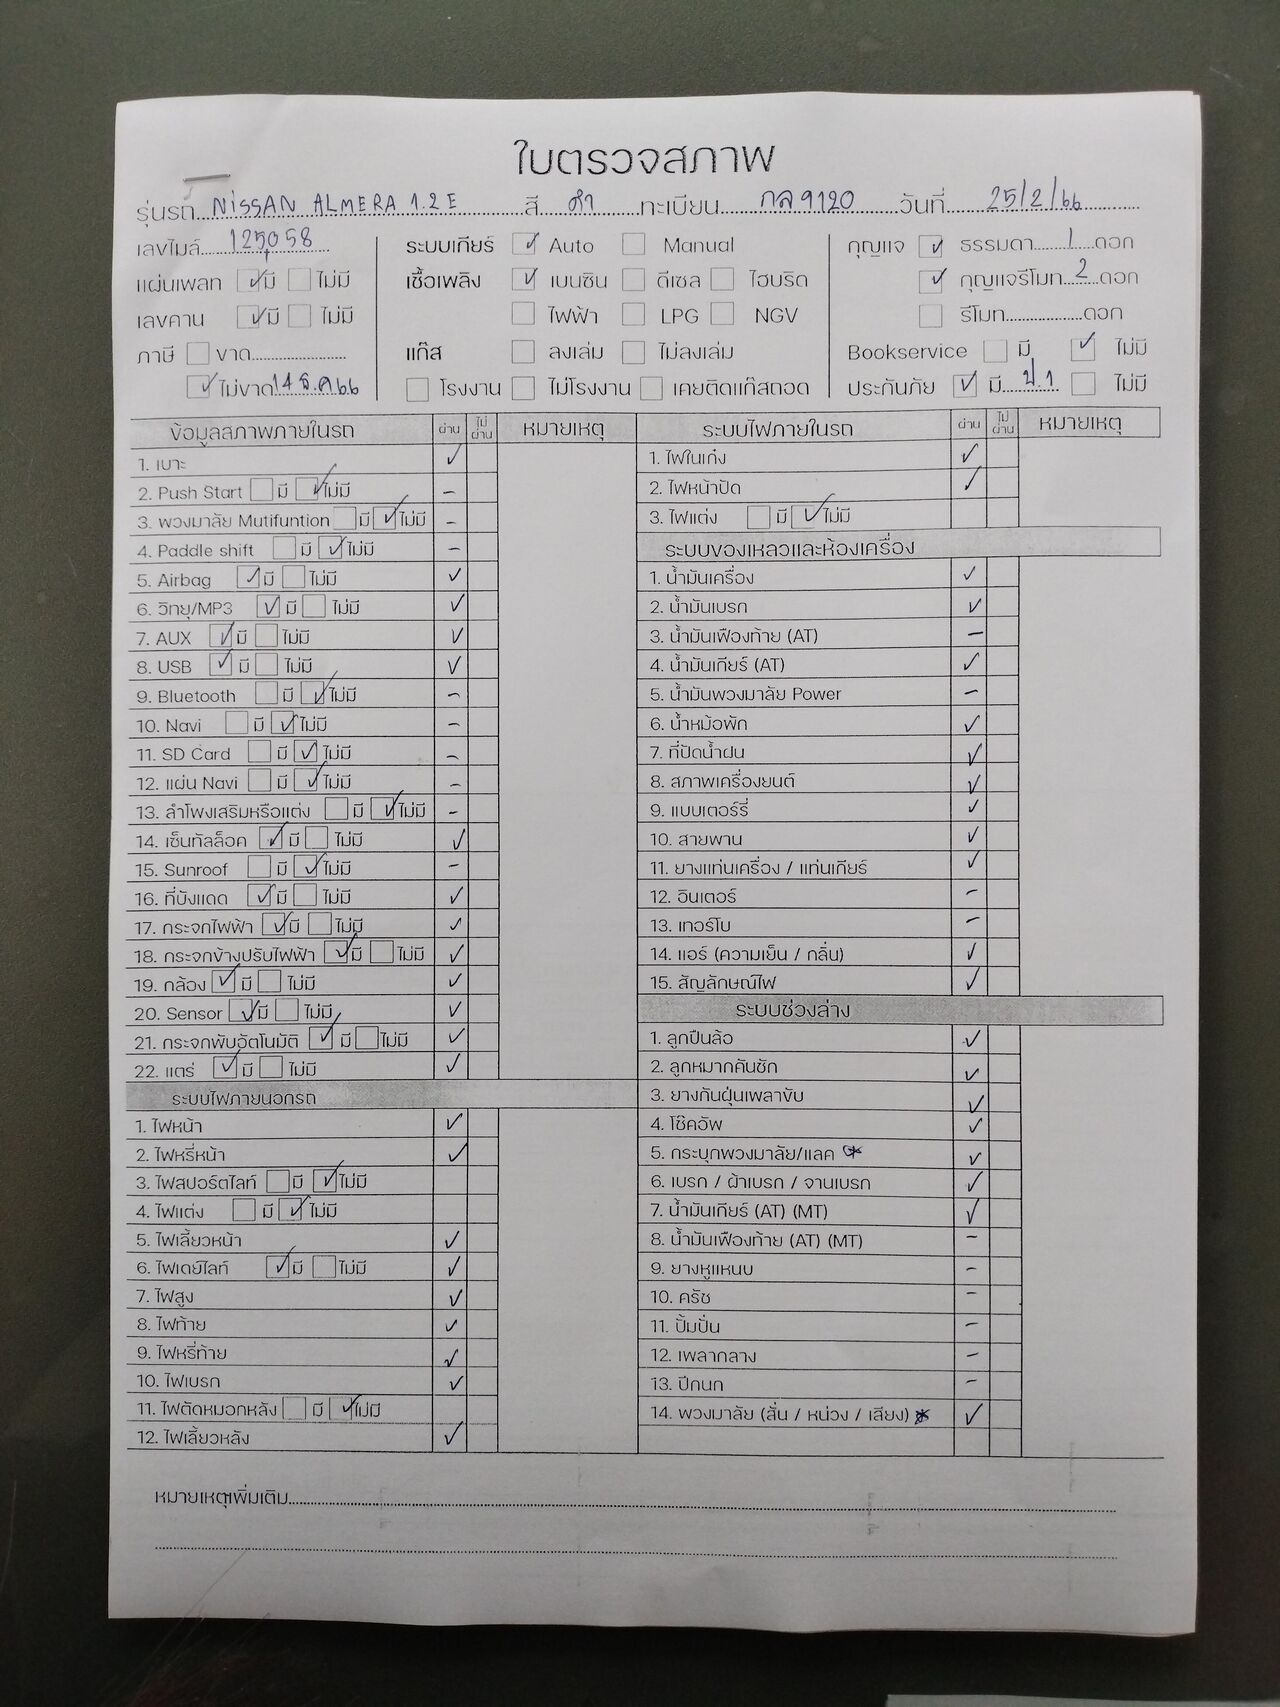 ใบตรวจสภาพ
รุ่นรถ NISSAN ALMERA 1.2 E สี ดำ ทะเบียน กล 9120 วันที่ 25/2/66
เลขไมล์ 125,058
แผ่นเพลท ✓ มี ไม่มี
เลขคาน ✓ มี ไม่มี
ภาษี ขาด
✓ ไม่ขาด 14 ธ.ค 66
ระบบเกียร์ ✓ Auto Manual
เชื้อเพลิง ✓ เบนซิน ดีเซล ไฮบริด
ไฟฟ้า LPG NGV
แก๊ส ลงเล่ม ไม่ลงเล่ม
โรงงาน ไม่โรงงาน เคยติดแก๊สถอด
กุญแจ ✓ ธรรมดา 1 ดอก
✓ กุญแจรีโมท 2 ดอก
รีโมท ดอก
Bookservice มี ✓ ไม่มี
ประกันภัย ✓ มี ป.1 ไม่มี
ข้อมูลสภาพภายในรถ ผ่าน ไม่ผ่าน หมายเหตุ
1. เบาะ ✓
2. Push Start มี ✓ ไม่มี –
3. พวงมาลัย Mutifuntion มี ✓ ไม่มี –
4. Paddle shift มี ✓ ไม่มี –
5. Airbag ✓ มี ไม่มี ✓
6. วิทยุ/MP3 ✓ มี ไม่มี ✓
7. AUX ✓ มี ไม่มี ✓
8. USB ✓ มี ไม่มี ✓
9. Bluetooth มี ✓ ไม่มี –
10. Navi มี ✓ ไม่มี –
11. SD Card มี ✓ ไม่มี –
12. แผ่น Navi มี ✓ ไม่มี –
13. ลำโพงเสริมหรือแต่ง มี ✓ ไม่มี –
14. เซ็นทัลล็อค ✓ มี ไม่มี ✓
15. Sunroof มี ✓ ไม่มี –
16. ที่บังแดด ✓ มี ไม่มี ✓
17. กระจกไฟฟ้า ✓ มี ไม่มี ✓
18. กระจกข้างปรับไฟฟ้า ✓ มี ไม่มี ✓
19. กล้อง ✓ มี ไม่มี ✓
20. Sensor ✓ มี ไม่มี ✓
21. กระจกพับอัตโนมัติ ✓ มี ไม่มี ✓
22. แตร่ ✓ มี ไม่มี ✓
ระบบไฟภายนอกรถ
1. ไฟหน้า ✓
2. ไฟหรี่หน้า ✓
3. ไฟสปอร์ตไลท์ มี ✓ ไม่มี
4. ไฟแต่ง มี ✓ ไม่มี
5. ไฟเลี้ยวหน้า ✓
6. ไฟเดย์ไลท์ ✓ มี ไม่มี ✓
7. ไฟสูง ✓
8. ไฟท้าย ✓
9. ไฟหรี่ท้าย ✓
10. ไฟเบรก ✓
11. ไฟตัดหมอกหลัง มี ✓ ไม่มี
12. ไฟเลี้ยวหลัง ✓
ระบบไฟภายในรถ ผ่าน ไม่ผ่าน หมายเหตุ
1. ไฟในเก๋ง ✓
2. ไฟหน้าปัด ✓
3. ไฟแต่ง มี ✓ ไม่มี
ระบบของเหลวและห้องเครื่อง
1. น้ำมันเครื่อง ✓
2. น้ำมันเบรก ✓
3. น้ำมันเฟืองท้าย (AT) –
4. น้ำมันเกียร์ (AT) ✓
5. น้ำมันพวงมาลัย Power –
6. น้ำหม้อพัก ✓
7. ที่ปัดน้ำฝน ✓
8. สภาพเครื่องยนต์ ✓
9. แบบเตอร์รี่ ✓
10. สายพาน ✓
11. ยางแท่นเครื่อง / แท่นเกียร์ ✓
12. อินเตอร์ –
13. เทอร์โบ –
14. แอร์ (ความเย็น / กลิ่น) ✓
15. สัญลักษณ์ไฟ ✓
ระบบช่วงล่าง
1. ลูกปืนล้อ ✓
2. ลูกหมากคันชัก ✓
3. ยางกันฝุ่นเพลาขับ ✓
4. โช๊คอัพ ✓
5. กระบุกพวงมาลัย/แลค * ✓
6. เบรก / ผ้าเบรก / จานเบรก ✓
7. น้ำมันเกียร์ (AT) (MT) ✓
8. น้ำมันเฟืองท้าย (AT) (MT) –
9. ยางหูแหนบ –
10. ครัช –
11. ปั้มปั่น –
12. เพลากลาง –
13. ปีกนก –
14. พวงมาลัย (สั่น / หน่วง / เลียง) * ✓
หมายเหตุเพิ่มเติม